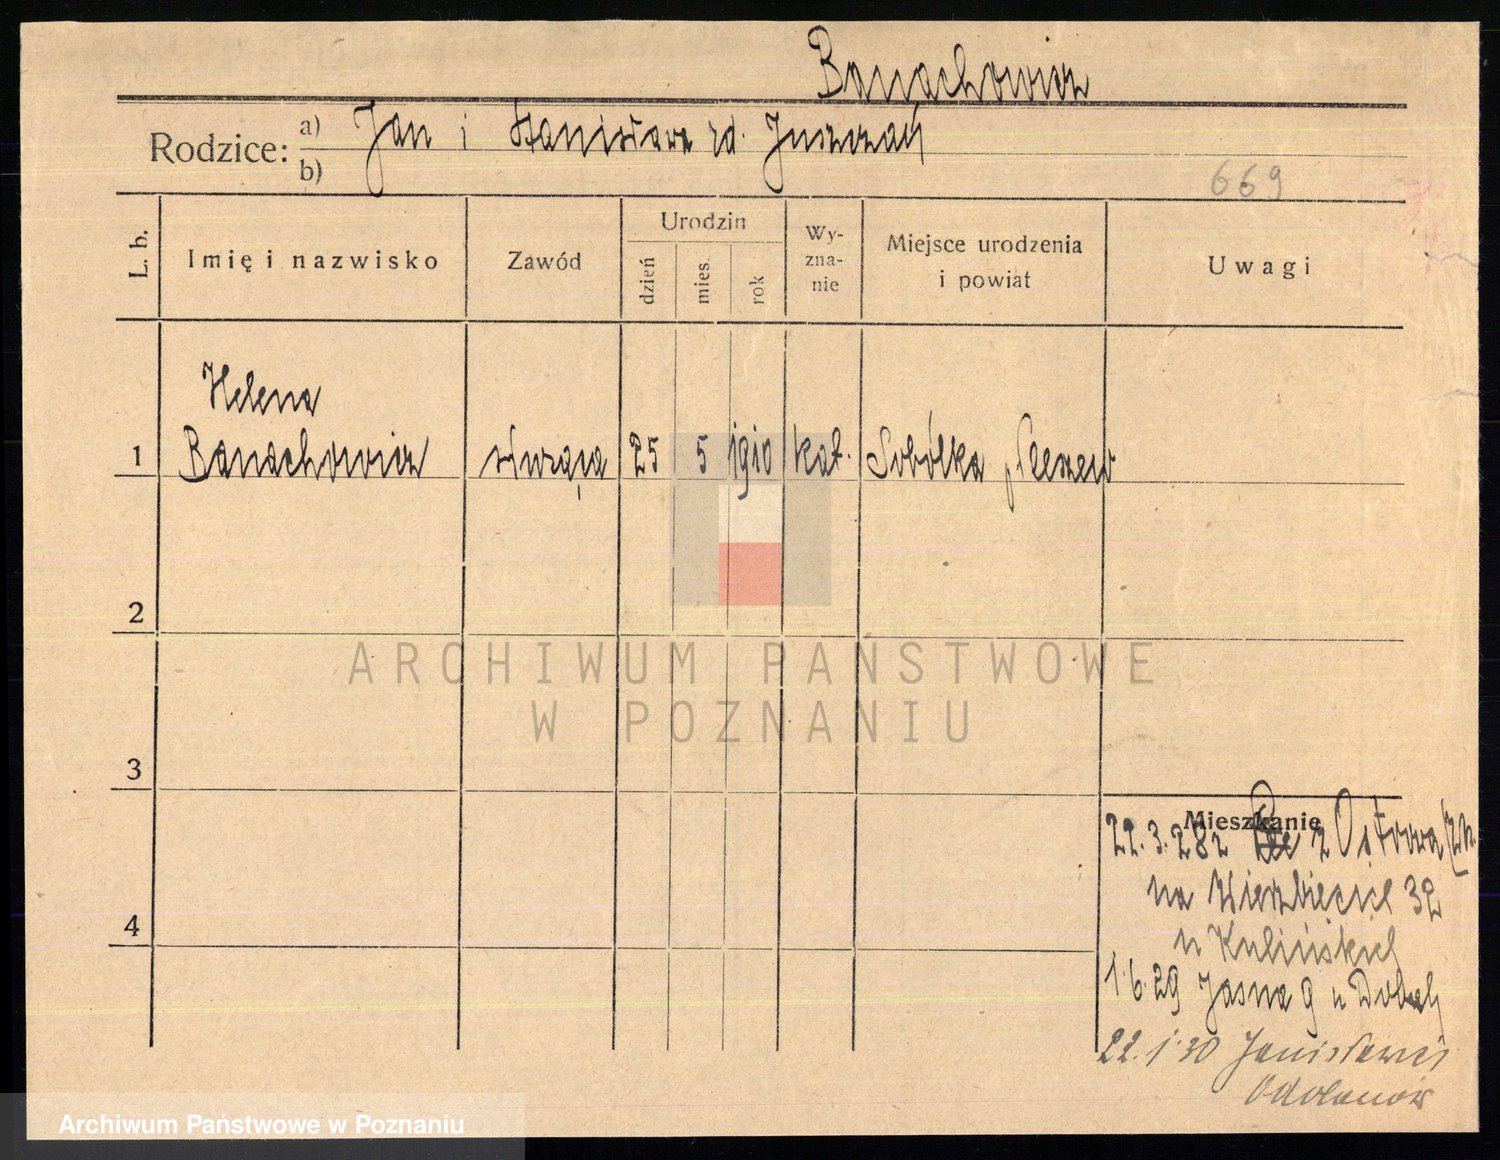 Banachowicz
Rodzice: a) Jan i Stanisława zd. Juszczak
b)
669
L. b.
Imię i nazwisko
Zawód
Urodzin
dzień
mies.
rok
Wy-
zna-
nie
Miejsce urodzenia
i powiat
Uwagi
Helena
1 Banachowicz służąca 25 5 1910 kat. Sobótka p Pleszew
2
3
4
Mieszkanie
22.3.28 z Ostrowa
na Wierzbięcice 32
u Kulińskich
1.6.29 Jasna 9 u
22.1.30 Janisławci
Odolanów
ARCHIWUM PAŃSTWOWE
W POZNANIU
Archiwum Państwowe w Poznaniu